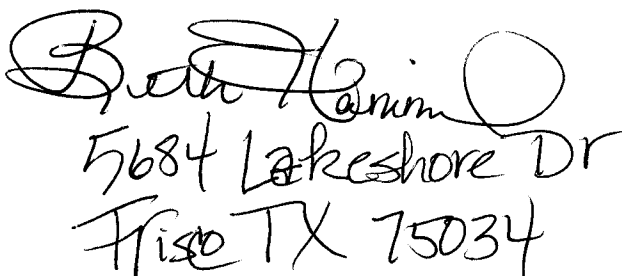 Beth Hamm
5684 Lakeshore Dr
Frisco TX 75034